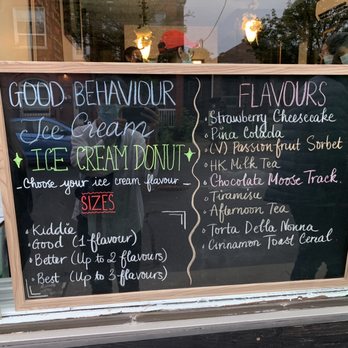 GOOD BEHAVIOUR
Ice Cream
ICE CREAM DONUT
Choose your ice cream flavour
SIZES
Kiddie
Good (1 flavour)
Better (Up to 2 flavours)
Best (Up to 3 flavours)
FLAVOURS
Strawberry Cheesecake
Pina Colada
(V) Passionfruit Sorbet
HK Milk Tea
Chocolate Moose Track
Tiramisu
Afternoon Tea
Torta Della Nonna
Cinnamon Toast Cereal